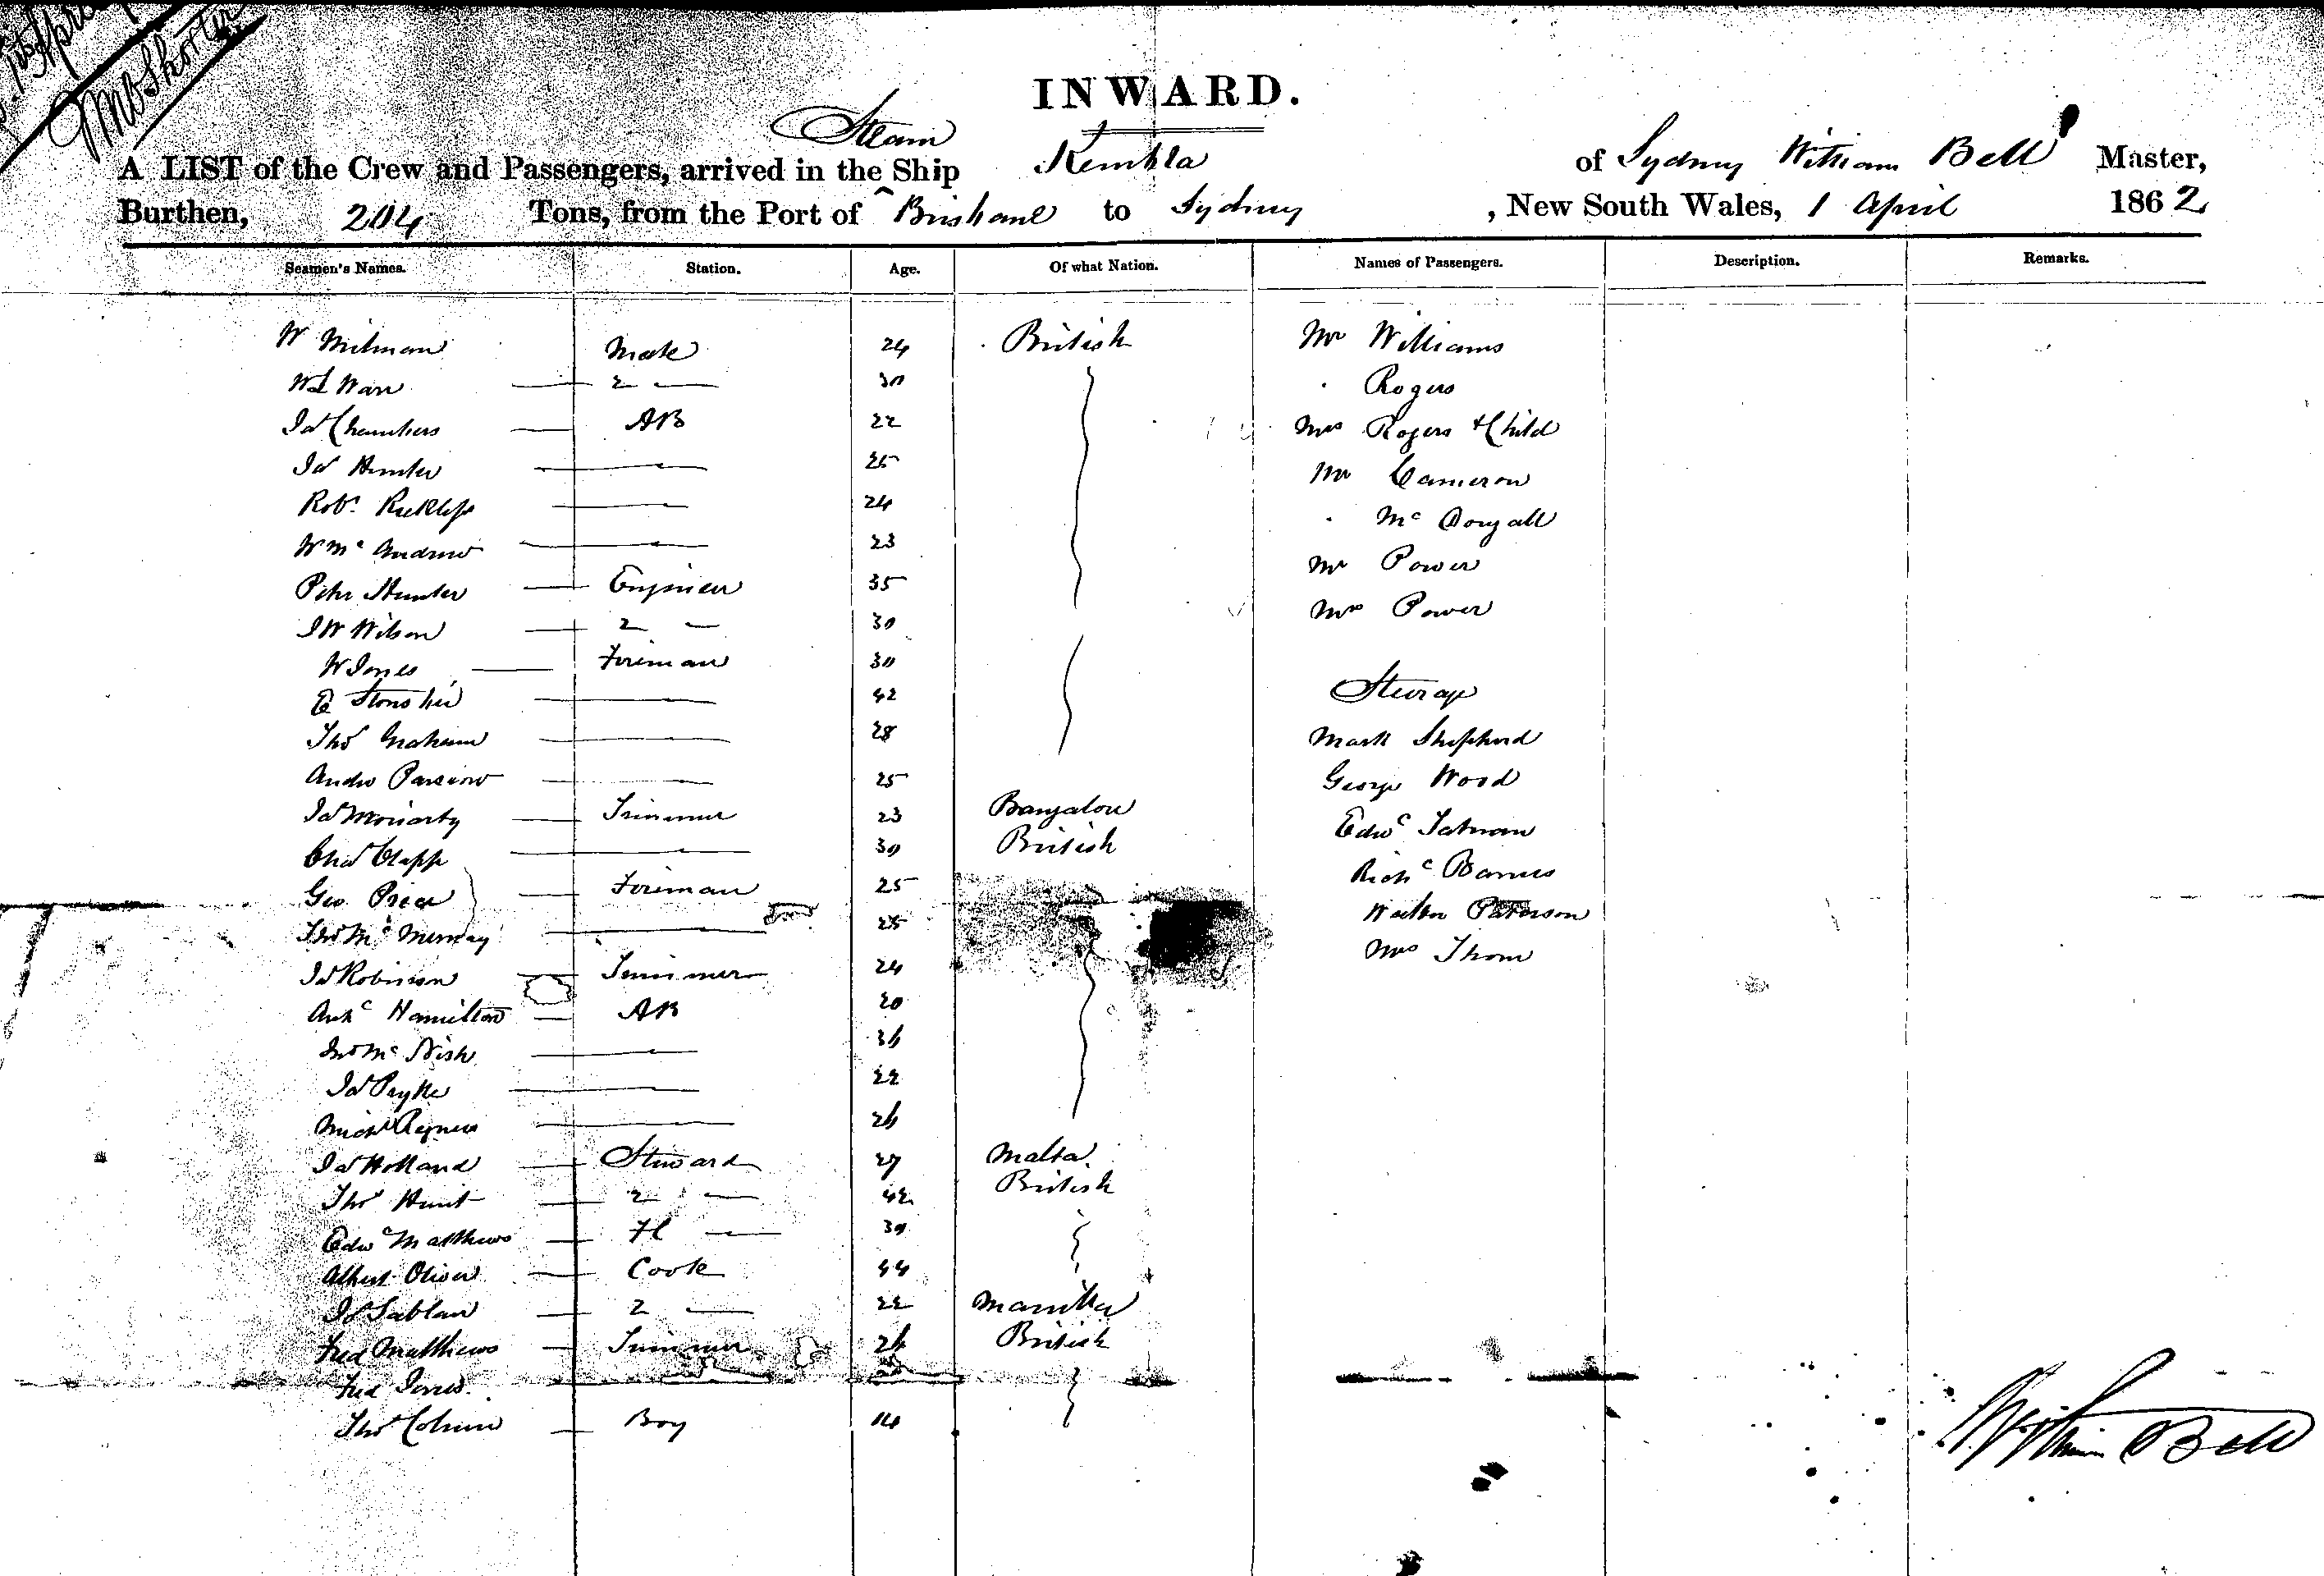 INWARD.
Steam
A LIST of the Crew and Passengers, arrived in the Ship Kembla of Sydney William Bell Master,
Burthen, 204 Tons, from the Port of ^ Brisbane to Sydney, New South Wales, 1 April 1862
Seamen's Names. Station. Age. Of what Nation. Names of Passengers. Description. Remarks.
W Milman Mate 24 British Mr Williams
Wm Warr — 2 — 30 · Rogers
Jas Chambers — AB 22 Mrs Rogers & Child
Jas Hunter — 25 Mr Cameron
Robt — 24 · Mc Dougall
W Mc Andrew — 23 Mr Power
Peter Hunter — Engineer 35 Mrs Power
J W Wilson — 2 — 30
W Jones — Fireman 30
E — 42 Steerage
Thos Graham — 28 Mark Shepherd
Andw — 25 George Wood
Jas Moriarty — Trimmer 23 Bangalore Edwd Tatman
Chas Clapp — 30 British Richd Barnes
Geo. Price — Fireman 25 Walter Paterson
Thos Mc — 25 Mrs Thom
Jas Robinson — Trimmer 24
Archd Hamilton — AB 20
Jno Mc Nish — 36
Jas Pryke — 22
Michl — 26
Jas Holland — Steward 27 Malta
Thos Hunt — 2 — 42 British
Edwd Matthews — — 30
Albert Oliver — Cook 44
Jos Tablan — 2 — 22 Manilla
Fred Matthews — Trimmer 26 British
Fred Jones —
Thos — Boy 14
William Bell